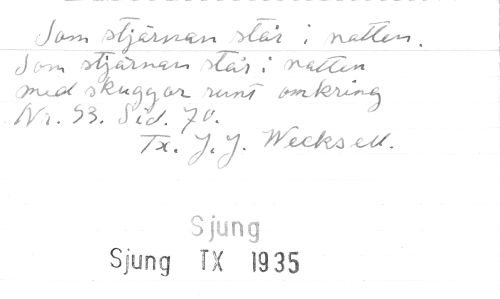 Som stjärnan står i natten.
Som stjärnan står i natten
med skuggor runt omkring
Nr. 93. Sid. 70.
Tx. J. J. Wecksell.
Sjung
Sjung TX 1935